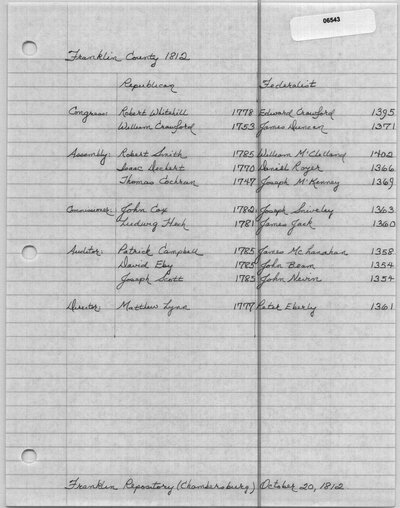 06543
Franklin County 1812
Republican Federalist
Congress: Robert Whitehill 1778 Edward Crawford 1395
William Crawford 1753 James Duncan 1371
Assembly: Robert Smith 1785 William McClelland 1402
Isaac Deckert 1770 Daniel Royer 1366
Thomas Cochran 1747 Joseph McKenney 1369
Commissioner: John Cox 1782 Joseph Snively 1363
Ludwig Heck 1781 James Jack 1360
Auditor: Patrick Campbell 1785 James McLanahan 1358
David Eby 1785 John Beam 1354
Joseph Scott 1785 John Nevin 1354
Director: Matthew Lynn 1777 Peter Eberly 1361
Franklin Repository (Chambersburg) October 20, 1812